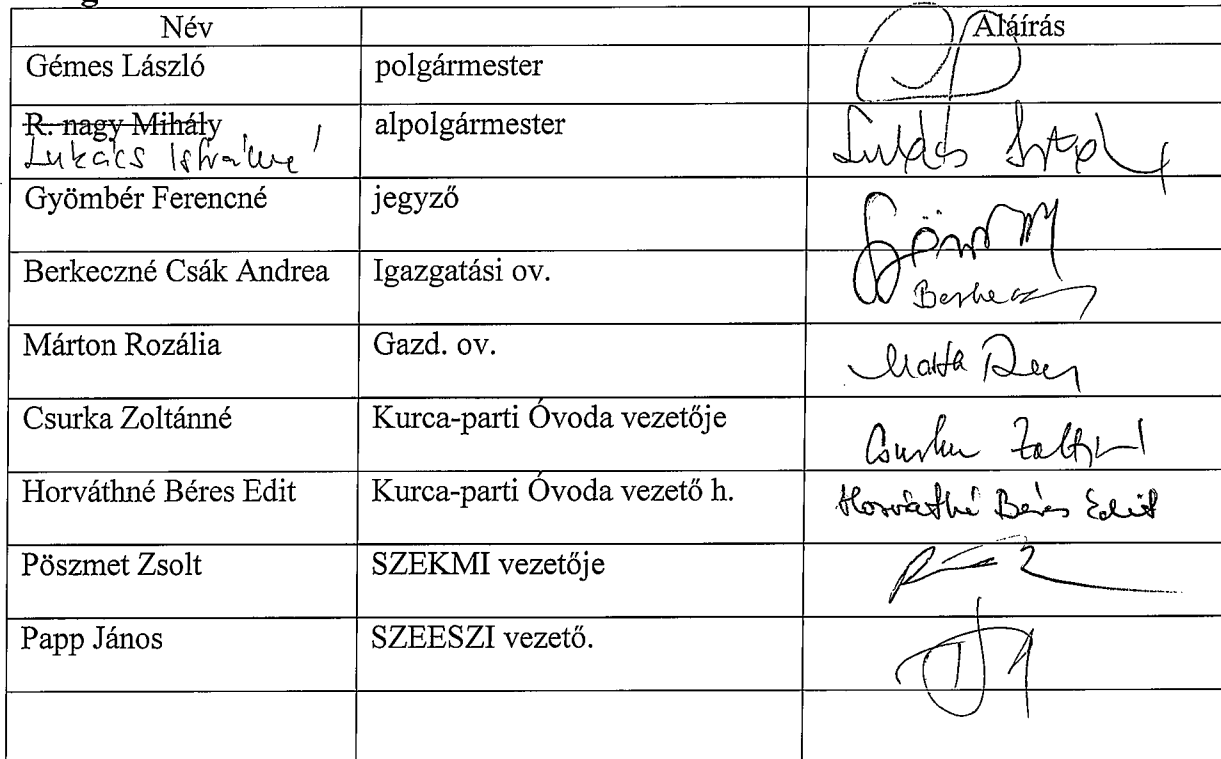 Név Aláírás
Gémes László polgármester
R. nagy Mihály alpolgármester
Lukács Istvánné
Gyömbér Ferencné jegyző
Berkeczné Csák Andrea Igazgatási ov.
Márton Rozália Gazd. ov.
Csurka Zoltánné Kurca-parti Óvoda vezetője
Horváthné Béres Edit Kurca-parti Óvoda vezető h. Horváthné Béres Edit
Pöszmet Zsolt SZEKMI vezetője
Papp János SZEESZI vezető.